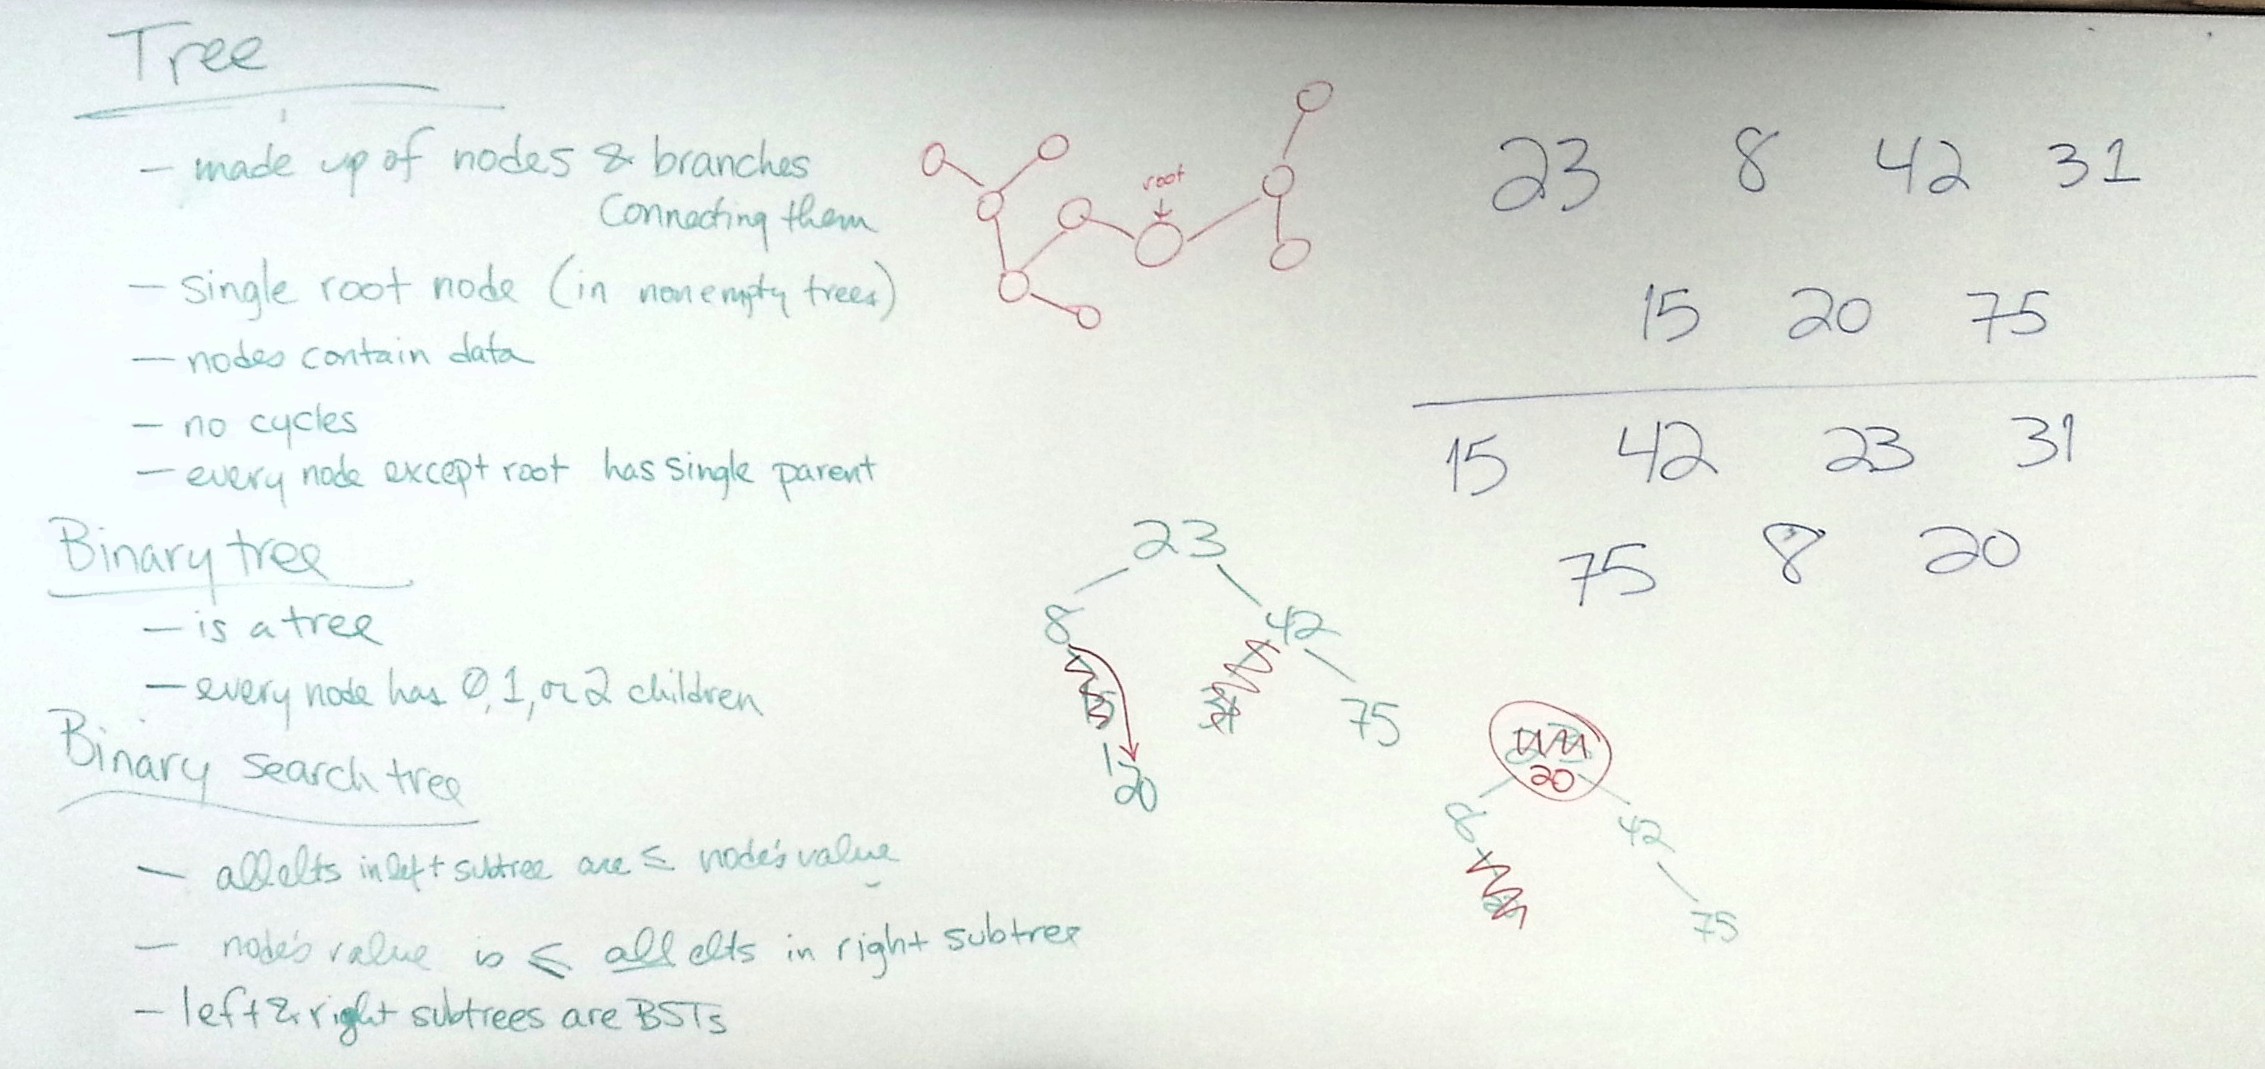 Tree
- made up of nodes & branches
connecting them
- single root node (in nonempty trees)
- nodes contain data
- no cycles
- every node except root has single parent
Binary tree
- is a tree
- every node has 0, 1, or 2 children
Binary search tree
- all elts in left subtree are ≤ node's value
- node's value is ≤ all elts in right subtree
- left & right subtrees are BSTs
root
23
8 42
75
20
20
8 42
75
23 8 42 31
15 20 75
15 42 23 31
75 8 20